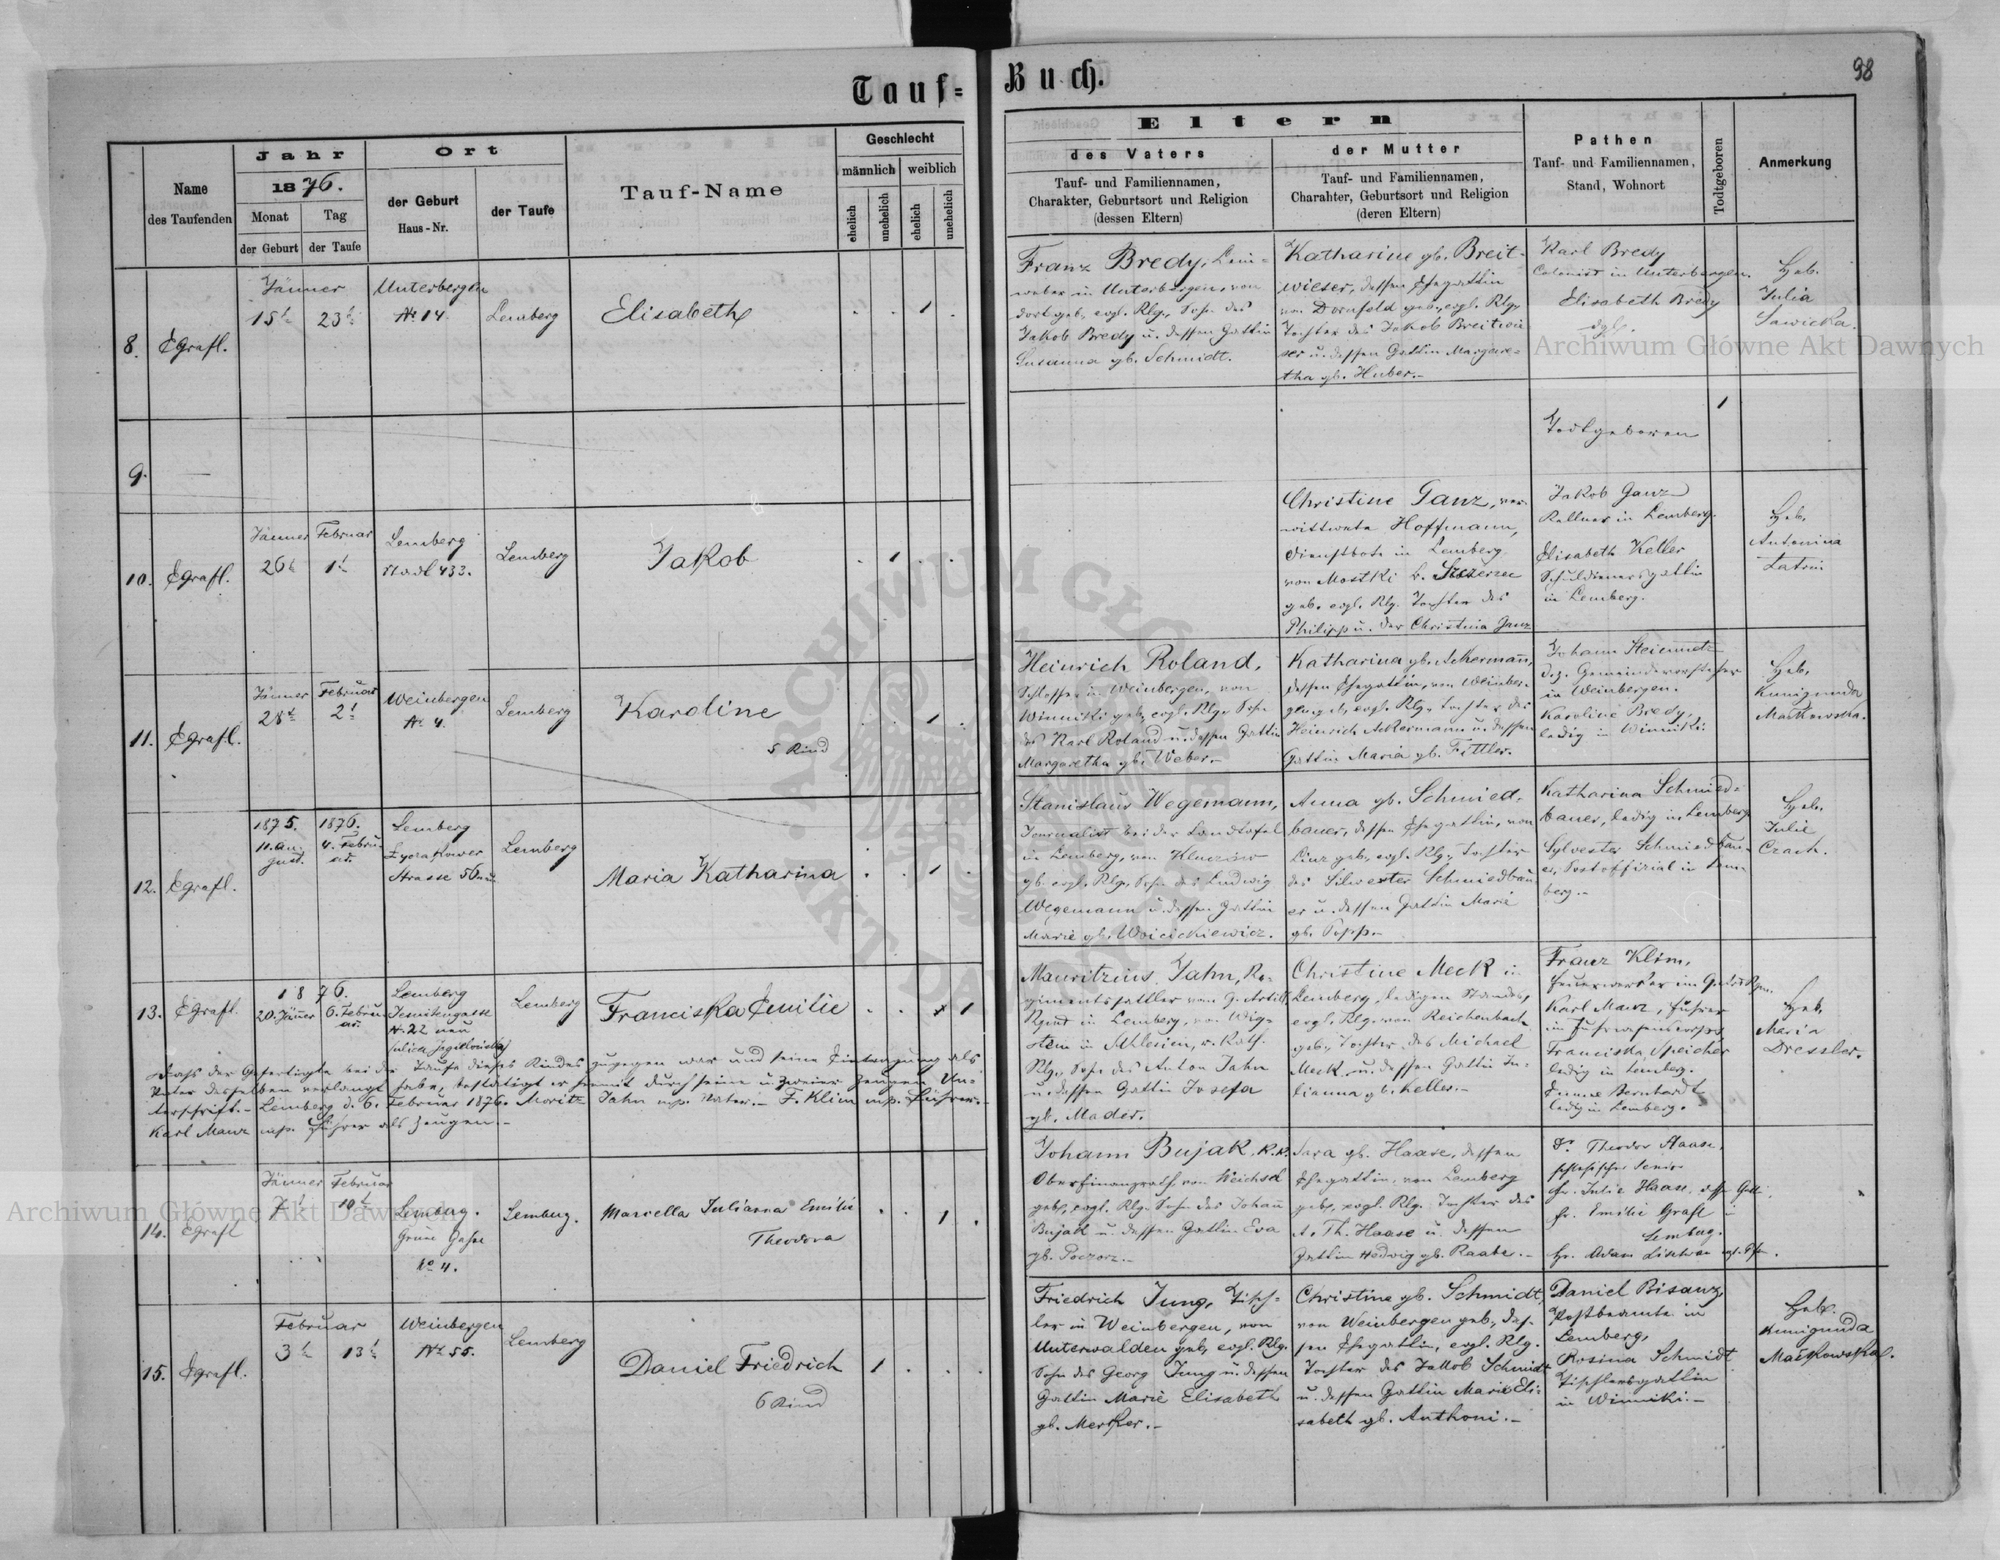 98
Tauf-Buch.
Name
des Taufenden
Jahr
1876.
Monat
Tag
der Geburt
der Taufe
Ort
der Geburt
Haus-Nr.
der Taufe
Tauf-Name
Geschlecht
männlich
weiblich
ehelich
unehelich
ehelich
unehelich
Eltern
des Vaters
Tauf- und Familiennamen,
Charakter, Geburtsort und Religion
(dessen Eltern)
der Mutter
Tauf- und Familiennamen,
Charahter, Geburtsort und Religion
(deren Eltern)
Pathen
Tauf- und Familiennamen,
Stand, Wohnort
Todtgeboren
Anmerkung
8.
EGrafl.
Jänner
15t
23t
Unterbergen
Nr. 14
Lemberg
Elisabeth
1
Franz Bredy, Lein-
weber in Unterbergen, von
dort geb. evgl. Rlg., Sohn des
Jakob Bredy u. dessen Gattin
Susanna gb. Schmidt.
Katharine gb. Breit-
wieser, dessen Ehegattin
von Dornfeld geb., evgl. Rlg.,
Tochter des Jakob Breitwie
ser u. dessen Gattin Margare-
tha gb. Huber.-
Karl Bredy
Colonist in Unterbergen.
Elisabeth Bredy
dgl.
Heb.
Julia
Sawicka.
9.
Todtgeboren
1
10.
EGrafl.
Jänner Februar
26t
1t
Lemberg
433.
Lemberg
Jakob
1
Christine Ganz, ver-
wittwete Hoffmann,
Dienstbote in Lemberg
von Mostki b. Szczerzec
geb. evgl. Rlg. Tochter des
Philipp u. der Christina Ganz
Jakob Ganz
Kellner in Lemberg.
Elisabeth Keller
Schuldienersgattin
in Lemberg.
Heb.
Antonina
11.
EGrafl.
Jänner Februar
28t
2t
Weinbergen
Nr. 4.
Lemberg
Karoline
5 Kind
1
Heinrich Roland,
Schlosser in Weinbergen, von
Winniki geb. evgl. Rlg., Sohn
des Karl Roland u. dessen Gattin
Margaretha gb. Weber.-
Katharina gb. Ackermann,
dessen Ehegattin, von Weinber-
gen geb. evgl. Rlg., Tochter des
Heinrich Ackermann u. dessen
Gattin Maria gb. Fittler.-
Johann Steinmetz
Gemeindevorsteher
in Weinbergen.
Karoline Bredy,
ledig in Winniki.
Heb.
Kunigunda
Maćkowska.
12.
EGrafl.
1875.
11. Au-
gust.
1876.
4. Febru-
ar.
Lemberg
Łyczakower
Strasse
Lemberg
Maria Katharina
1
Stanislaus Wegemann,
Journalist bei der Landtafel
in Lemberg, von
gb. evgl. Rlg., Sohn des Ludwig
Wegemann u. dessen Gattin
Marie gb. Woicickiewicz.
Anna gb. Schmied-
bauer, dessen Ehegattin, von
Linz geb., evgl. Rlg., Tochter
des Silvester Schmiedbau-
er u. dessen Gattin Marie
gb. Popp.-
Katharina Schmied-
bauer, ledig in Lemberg
Sylvester Schmiedbau-
er, Postoffizial in Lem-
berg.-
Heb.
Julie
Czach.
13.
EGrafl.
1876.
20. Jänner
6. Febru-
ar.
Lemberg
Jesuitengasse
Nr. 22 neu
(ulica Jagiellońska)
Lemberg
Franciska Emilie
x 1
Dass der Gefertigte bei der Taufe dieses Kindes zugegen war und seine Eintragung als
Vater desselben verlangt habe, bestätigt er hiemit durch seine u. zweier Zeugen Un-
terschrift.- Lemberg d. 6. Februar 1876. Moritz Jahn mp. Vater.- F. Klim mp. Führer.-
Karl Manz mp. Führer als Zeugen.-
Mauritzius Jahn, Re-
gimentssattler vom 9. Artill.
Rgmt in Lemberg, von Wig-
stein in Schlesien, r. kath.
Rlg., Sohn des Anton Jahn
u. dessen Gattin Josefa
gb. Mader.
Christine Meck in
Lemberg, ledigen Standes,
evgl. Rlg. von Reichenbach
geb., Tochter des Michael
Meck u. dessen Gattin Ju-
lianna gb. Keller.-
Franz Klim,
Feuerwerker im
Karl Manz, Führer
im Fuhrwesencorps
Franciska Speicher
ledig in Lemberg.
Emma Bernhardt
ledig in Lemberg.
Heb.
Maria
Dressler.
14.
EGrafl
Jänner Februar
7t
10t
Lemberg.
Grüne Gasse
No 4.
Lemberg.
Marcella Julianna Emilie
Theodora
1
Johann Bujak, k.k.
Oberfinanzrath von Weichsel
geb., evgl. Rlg. Sohn des Johann
Bujak u. dessen Gattin Eva
gb. Poczorz.-
Sara gb. Haase, dessen
Ehegattin, von Lemberg
geb., evgl. Rlg. Tochter des
A. Th. Haase u. dessen
Gattin Hedwig gb. Raabe.-
Dr. Theodor Haase,
schlesischer Senior
Fr. Julie Haase,
Fr. Emilie Grafl in
Lemberg.
Hr. Adam
15.
EGrafl.
Februar
3t
13t
Weinbergen
Nr. 55.
Lemberg
Daniel Friedrich
6 Kind
1
Friedrich Jung, Tisch-
ler in Weinbergen, von
Unterwalden geb. evgl. Rlg.
Sohn des Georg Jung u. dessen
Gattin Marie Elisabeth
gb. Merker.-
Christine gb. Schmidt,
von Weinbergen geb., des-
sen Ehegattin, evgl. Rlg.
Tochter des Jakob Schmidt
u. dessen Gattin Marie Eli-
sabeth gb. Anthoni.-
Daniel Bisanz,
Postbeamte in
Lemberg,
Rosina Schmidt
Tischlersgattin
in Winniki.-
Heb.
Kunigunda
Maćkowska.
Archiwum Główne Akt Dawnych
Archiwum Główne Akt Dawnych
ARCHIWUM GŁÓWNE AKT DAWNYCH